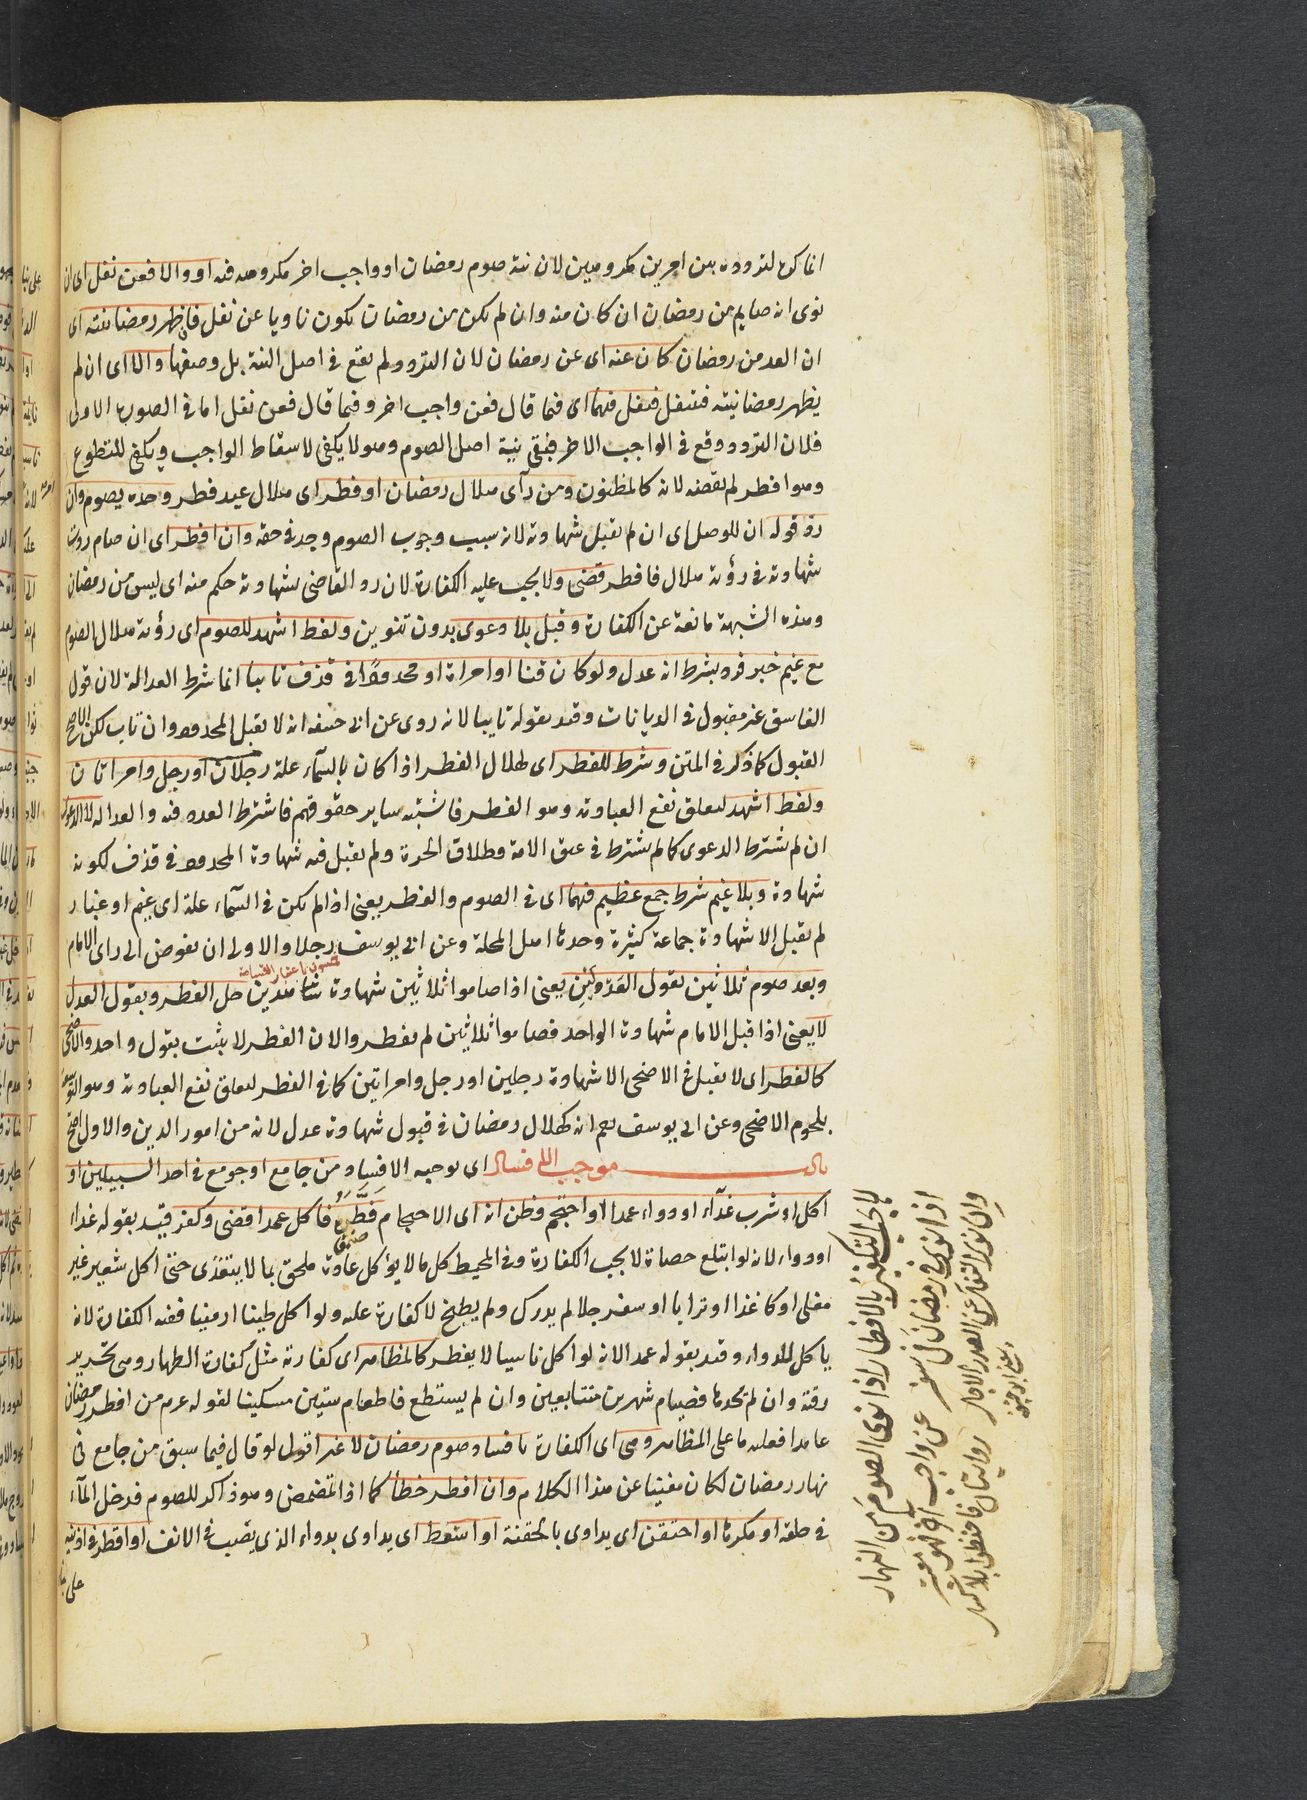 انما كره لتردده بين امرين مكروهين لان نية صوم رمضان او واجب اخر مكروهه فيه او والا فعن نفل اى ان
نوى انه صايم من رمضان ان كان منه وان لم يكن من رمضان يكون ناويا عن نفل فان ظهر رمضانيته اى
ان الغد من رمضان كان عنه اى عن رمضان لان التردد لم يقع فى اصل النية بل وصفها والا اى ان لم
يظهر رمضانيته فتنفل فنفل فيهما اى فيما قال فعن واجب اخر وفيما قال فعن نفل اما فى الصورة الاولى
فلان التردد وقع فى الواجب الاخر فبقى نية اصل الصوم وهو لا يكفى لاسقاط الواجب ويكفى للتطوع
وهو افطر لم يقضه لانه كالمظنون ومن رآى هلال رمضان او فطر اى هلال عيد فطر وحده يصوم وان
رد قوله ان للوصل اى ان لم يقبل شهادته لانه سبب وجوب الصوم وجد فى حقه وان افطر اى ان صام وردت
شهادته فى رؤية هلال فافطر قضى ولا يجب عليه الكفارة لان رد القاضى شهادته حكم منه اى ليس من رمضان
وهذه الشبهة مانعة عن الكفارة وقبل بلا دعوى بدون تنوين ولفظ اشهد للصوم اى رؤية هلال الصوم
مع غيم خبر فرد بشرط انه عدل ولو كان قنا او امراة او محدودا فى قذف تايبا انما شرط العدالة لان قول
الفاسق غير مقبول فى الديانات وقيد بقوله تايبا لانه روى عن ابى حنيفه انه لا يقبل المحدود وان تاب لكن الاصح
القبول كما ذكر فى المتن وشرط للفطر اى هلال الفطر اذا كان بالسماء علة رجلان او رجل وامراتان
ولفظ اشهد لتعلق نفع العباد به وهو الفطر فاشبه ساير حقوقهم فاشترط العدد فيه والعدالة لا الدعوى
ان لم يشترط الدعوى كما لم يشترط فى عتق الامة وطلاق الحرة ولم يقبل فيه شهادة المحدود فى قذف لكونه
شهادة وبلا غيم شرط جمع عظيم فيهما اى فى الصوم والفطر يعنى اذا لم يكن فى السماء علة اى غيم او غبار
لم يقبل الا شهادة جماعة كثيرة وحدها اهل المحلة وعن ابى يوسف رجلا والاولى ان يفوض الى راى الامام
خمسون باعتبار القسامة
وبعد صوم ثلاثين بقول العدلين يعنى اذا صاموا ثلاثين شهادة شاهدين حل الفطر وبقول العدل
لا يعنى اذا قبل الامام شهادة الواحد فصاموا ثلاثين لم يفطروا لان الفطر لا يثبت بقول واحد والاضحى
كالفطر اى لا يقبل فى الاضحى الا شهادة رجلين او رجل وامراتين كما فى الفطر لتعلق نفع العباد به وهو التوسع
بلحوم الاضحى وعن ابى يوسف رحم انه كهلال رمضان فى قبول شهادة عدل لانه من امور الدين والاول اصح
باب موجب الافساد اى يوجبه الافساد من جامع او جومع فى احد السبيلين او
اكل او شرب غذآء او دواء عمدا او احتجم وظن انه اى الاحتجام فَطَّرَهُ فاكل عمدا قضى وكفر قيد بقوله غذاء
او دواء لانه لو ابتلع حصاة لا يجب الكفارة وفى المحيط كل ما لا يؤكل عادة ملحق بما لا يتغذى حتى اكل شعير غير
مقلى او كاغذا او ترابا او سفرجلا لم يدرك ولم يطبخ لا كفارة عليه ولو اكل طينا ارمنيا ففيه الكفارة لانه
ياكل للدواء وقيد بقوله عمدا لانه لو اكل ناسيا لا يفطر كالمظاهر اى كفارته مثل كفارة الظهار وهى تحرير
رقبة وان لم يجدها فصيام شهرين متتابعين وان لم يستطع فاطعام ستين مسكينا لقوله عم من افطر رمضان
عامدا فعليه ما على المظاهر وهى اى الكفارة بافساد صوم رمضان لا غير اقول لو قال فيما سبق من جامع فى
نهار رمضان لكان مغنيا عن هذا الكلام وان افطر خطأ كما اذا تمضمض وهو ذاكر للصوم فدخل المآء
فى حلقه او مكرها او احتقن اى يداوى بالحقنة او استعط اى يداوى بدواء الذى يصب فى الانف او اقطر فى اذنيه
لا يجب التكفير بالافطار اذا نوى الصوم من النهار
اذا نوى فى رمضان فى سفر عن واجب آخر فهو عنه
وان نوى النفل عن الصدر الاجل روايتان فاحفظوا بلا